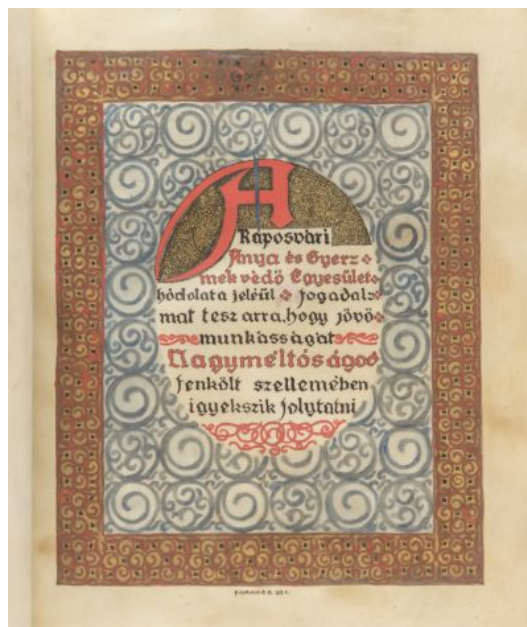 A
Kaposvári
Anya és Gyer=
mek védő Egyesület
hódolata jeléül fogadal=
mat tesz arra, hogy jövő
munkásságát
Nagyméltóságod
fenkölt szellemében
igyekszik folytatni